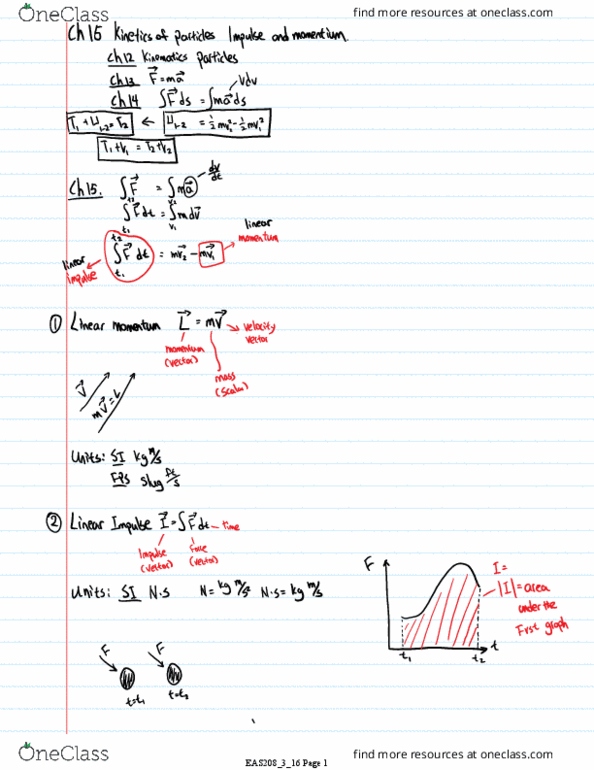 OneClass
find more resources at oneclass.com
Ch 15 Kinetics of particles Impulse and momentum.
Ch12 Kinematics particles
Ch13 F=ma
Ch14 ∫Fds = ∫mads
vdv
T₁ + U₁₋₂ = T₂ ← U₁₋₂ = ½mv₂² - ½mv₁²
T₁+V₁ = T₂+V₂
dv/dt
Ch15. ∫F = ∫ma
t₂ v₁
∫Fdt = ∫mdv
t₁ v₁
linear momentum
t₂
∫F dt = mv₂ - mv₁
t₁
linear impulse
① Linear momentum L = mv → velocity vector
momentum (vector)
mass (scalar)
V
mV=L
Units: SI kg m/s
FPS slug ft/s
② Linear Impulse I = ∫Fdt - time
Impulse (vector)
force (vector)
Units: SI N.S N = kg m/s² N.s = kg m/s
F
I =
|I| = area
under the
t₁ t₂ t
F F
t=t₁ t=t₂
OneClass
EAS208_3_16 Page 1
find more resources at oneclass.com